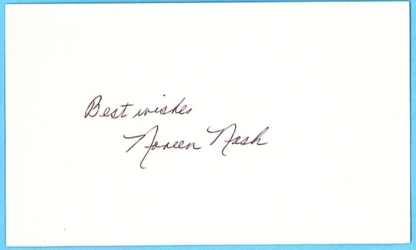 Best wishes
Noreen Nash